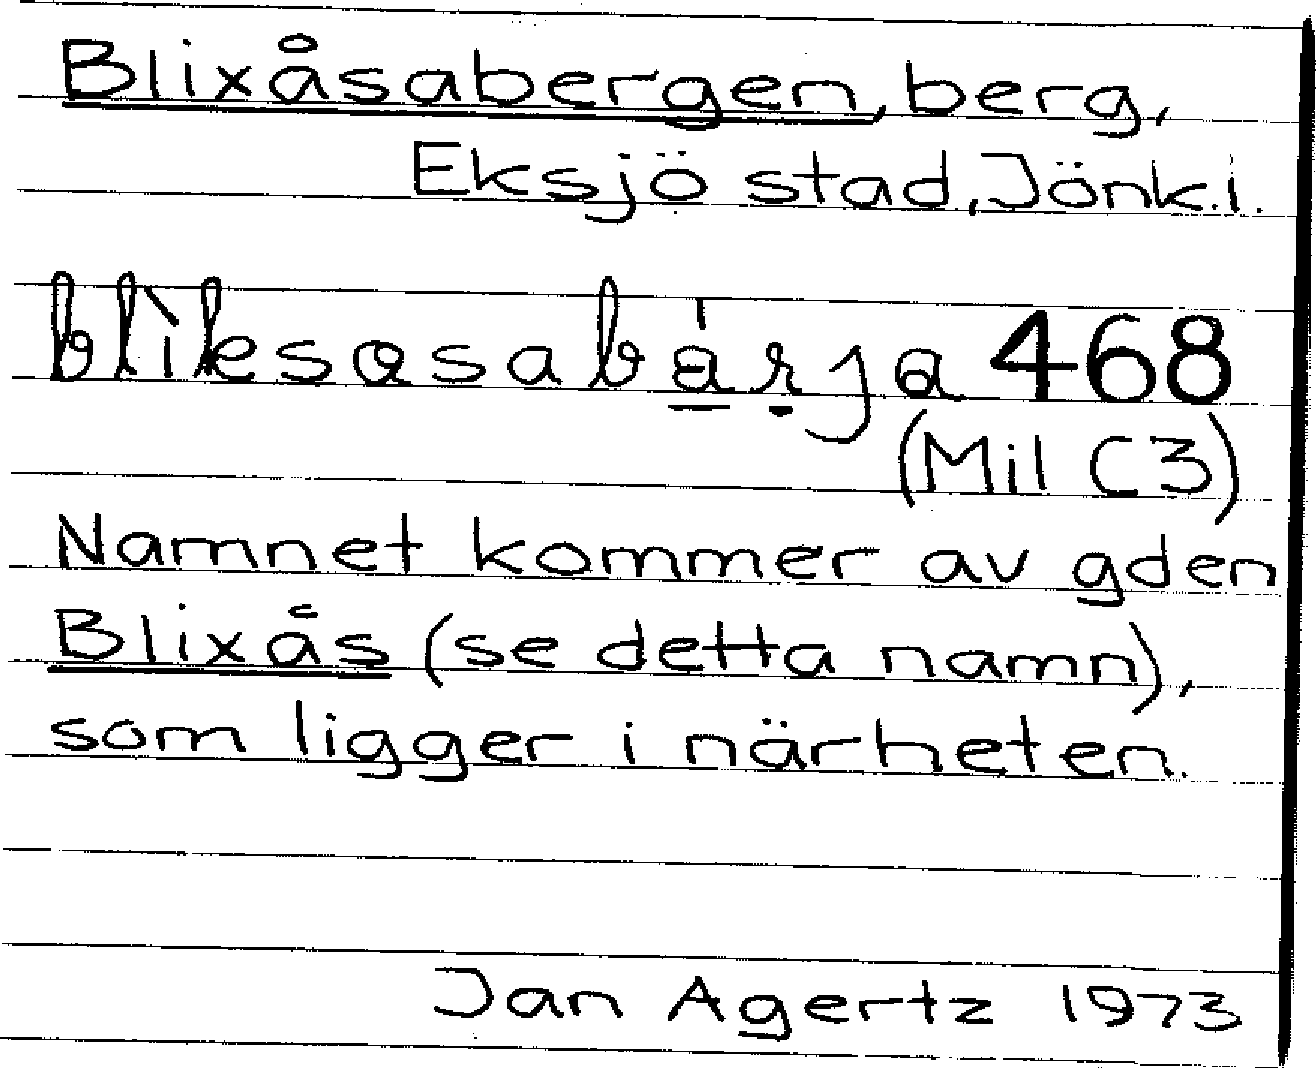 Blixåsabergen, berg,
Eksjö stad, Jönk.l.
blìksasabárja 468
(Mil C3)
Namnet kommer av gden
Blixås (se detta namn),
som ligger i närheten.
Jan Agertz 1973